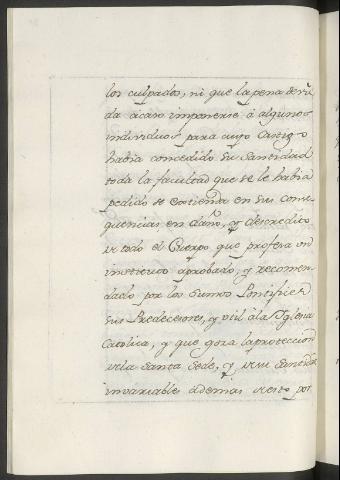 los culpados, ni que la pena devi
da acaso imponerse á algunos
individuos para cuyo Castigo
habia concedido Su Santidad
toda la facultad que se le habia
pedido se extienda en sus conse
quencias en daño, y descredito
de todo el Cuerpo que profesa un
instituto aprobado, y recomen
dado por los Sumos Pontifices
sus Predecesores, y util á la Yglesia
Catolica, y que goza la proteccion
de la Santa Sede, y de su Santidad
invariables ademas de esto por